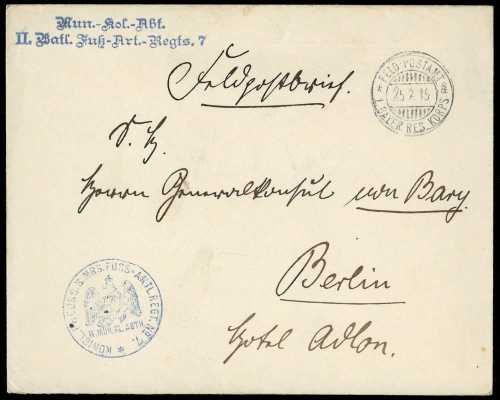 Mun.-Kol.-Abt.
II. Batl. Fuß-Art.-Regts. 7
Feldpostbrief.
FELD-POSTAMT
25 2 15
1. BAIER RES. KORPS
S. H.
Herrn Generalkonsul von Bary
Berlin
Hotel Adlon.
KÖNIGL. PREUSS. 
FUSS-ARTL. REGT. No 7.
II. MUN. KL. ABTH.